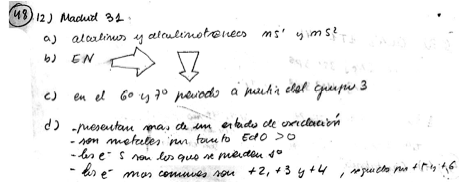 48 12) Madrid 31.
a) alcalinos y alcalinotérreos ns¹ y ns²
b) EN
c) en el 6º y 7º periodo a partir del grupo 3
d) - presentan mas de un estado de oxidación
- son metales por tanto EdO > 0
- los e⁻ s son los que se pierden 1º
- los e⁻ mas comunes son +2, +3 y +4, seguidos por +1 y +6